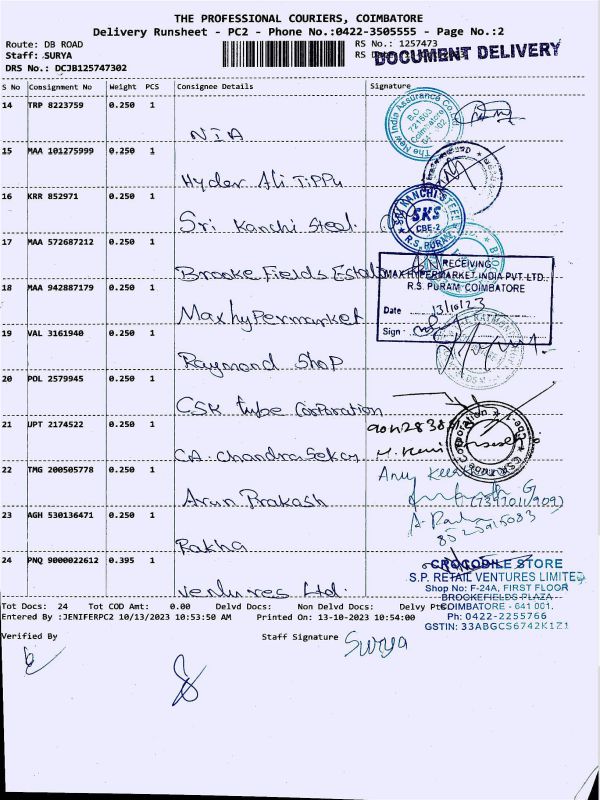 THE PROFESSIONAL COURIERS, COIMBATORE
Delivery Runsheet - PC2 - Phone No.:0422-3505555 - Page No.:2
Route: DB ROAD RS No.: 1257473
Staff: SURYA RS DOCUMENT DELIVERY
DRS No.: DCJB125747302
S No Consignment No Weight PCS Consignee Details Signature
14 TRP 8223759 0.250 1
NIA
The New India Assurance Co.
15 MAA 101275999 0.250 1
Hyder Ali Tippu
16 KRR 852971 0.250 1
Sri Kanchi Steel
SRI KANCHI STEEL
SKS
CBE-2
R.S. PURAM
17 MAA 572687212 0.250 1
Brooke Fields Estate
RECEIVING
MAX HYPERMARKET INDIA PVT. LTD.,
R.S. PURAM COIMBATORE
18 MAA 942887179 0.250 1
Max hyPermarket
Date 13/10/23
Sign
19 VAL 3161940 0.250 1
Raymond Shop
20 POL 2579945 0.250 1
CSK tube Corporation
21 UPT 2174522 0.250 1
CA. Chandra Sekar
22 TMG 200505778 0.250 1
Arun Prakash
(7397011909)
23 AGH 530136471 0.250 1
8525915083
Rakha
24 PNQ 9000022612 0.395 1
Ventures Ltd.
CROCODILE STORE
S.P. RETAIL VENTURES LIMITED
Shop No: F-24A, FIRST FLOOR
BROOKEFIELDS PLAZA
COIMBATORE - 641 001.
Ph: 0422-2255766
GSTIN: 33ABGCS6742K1Z1
Tot Docs: 24 Tot COD Amt: 0.00 Delvd Docs: Non Delvd Docs: Delvy Pt
Entered By :JENIFERPC2 10/13/2023 10:53:50 AM Printed On: 13-10-2023 10:54:00
Verified By Staff Signature Surya